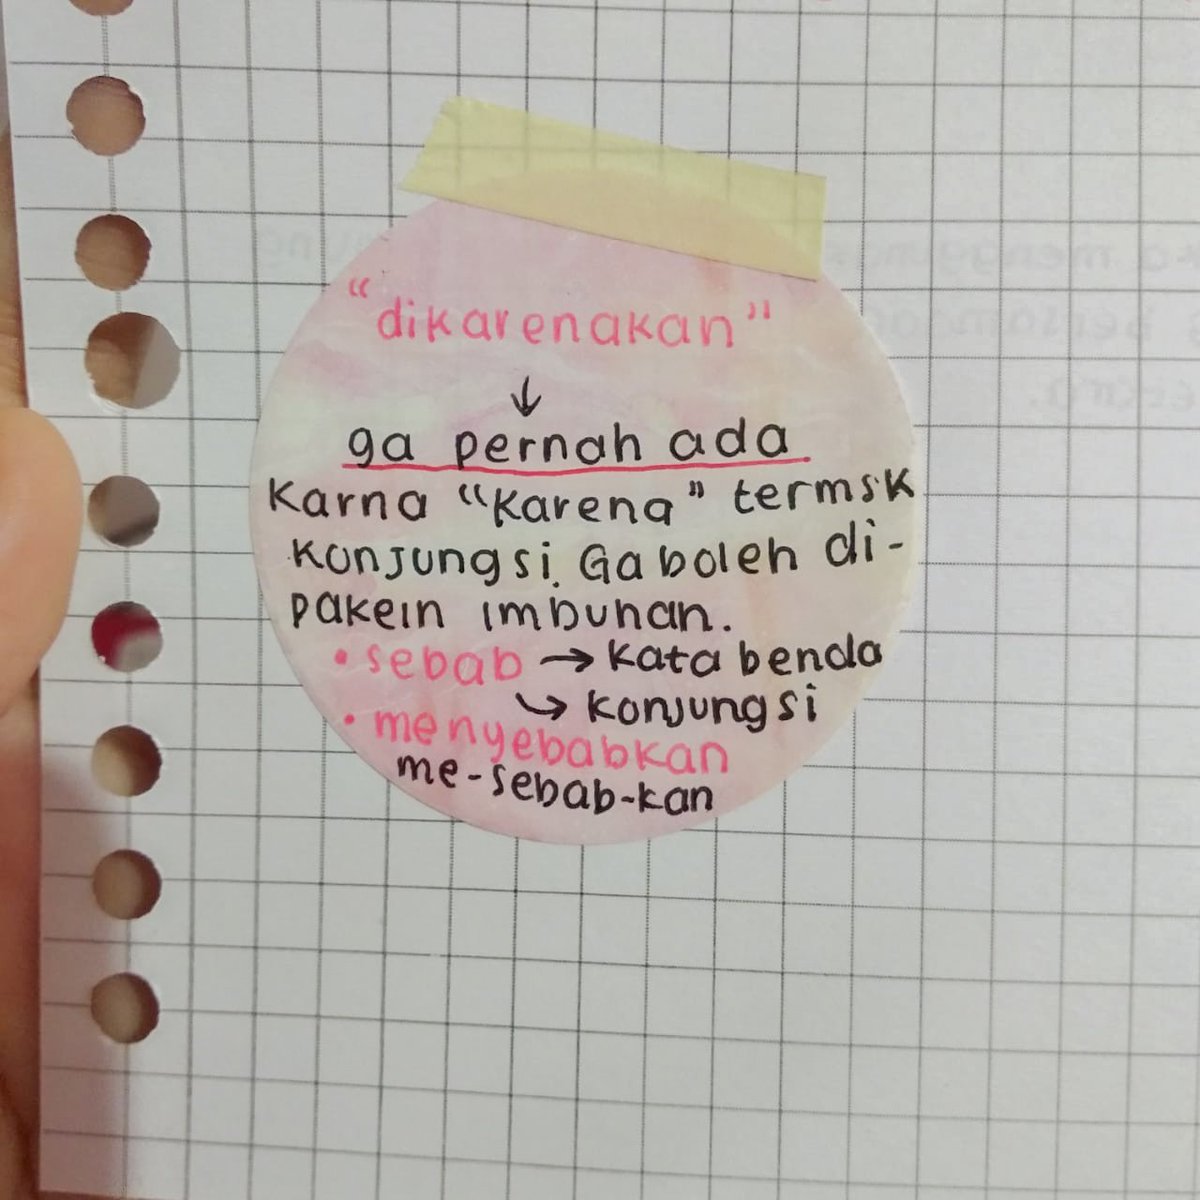 "dikarenakan"
↓
ga pernah ada
karna "karena" termsk
konjungsi. Ga boleh di-
pakein imbuhan.
• sebab → kata benda
↳ konjungsi
• menyebabkan
me-sebab-kan